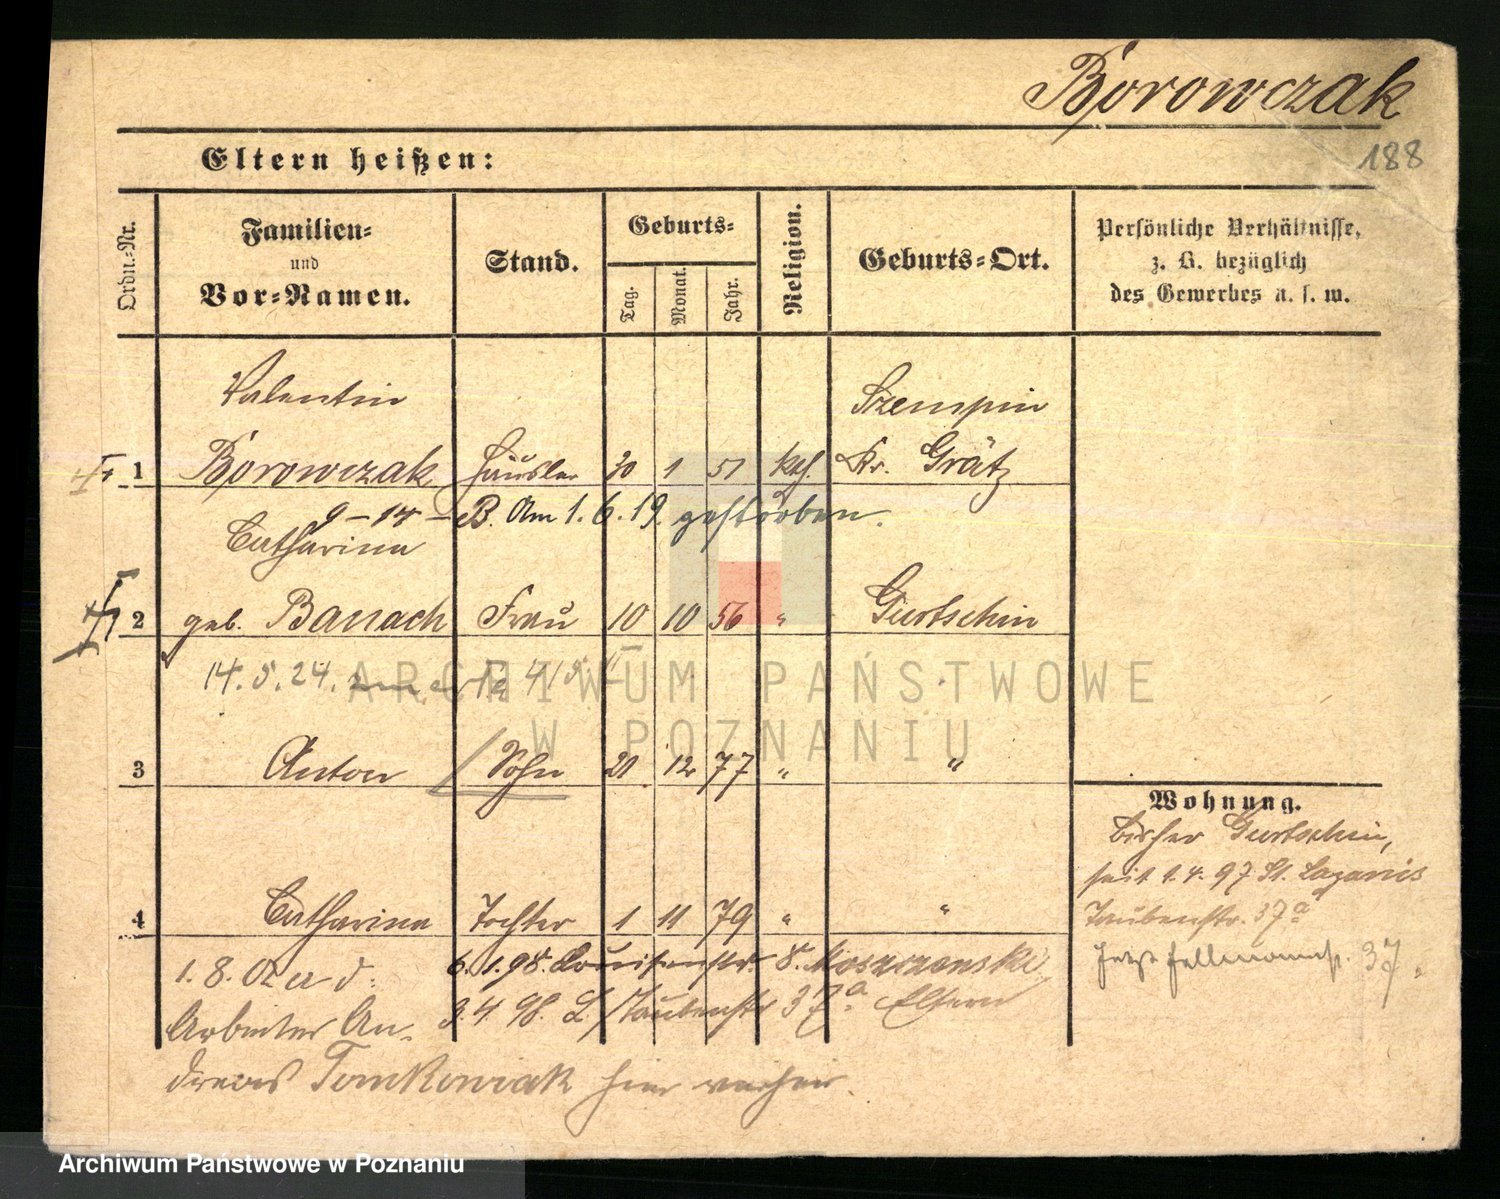 Borowczak
188
Eltern heißen:
Ordn.-Nr.
Familien-
und
Vor-Namen.
Stand.
Geburts-
Tag.
Monat.
Jahr.
Religion.
Geburts-Ort.
Persönliche Verhältnisse,
z. B. bezüglich
des Gewerbes u. s. w.
Valentin
Szempin
1 Borowczak Häusler 30 1 51 kth. Kr. Grätz
9-14-B. Am 1.6.19. gestorben.
Catharina
2 geb. Banach Frau 10 10 56 " Gurtschin
14.5.24.
3 Anton Sohn 21 12 77 " "
Wohnung.
bisher Gurtschin,
seit 1.4.97 St. Lazarus
4 Catharina Tochter 1 11 79 " "
Taubenstr. 37a
jetzt Hellmannstr. 37
1.8.02 a. d.
6.1.98. Louisenstr. 8. Moszczenski
Arbeiter An-
3.4.98. L. Taubenstr 37a Eltern
dreas Tomkowiak hier verheir.
ARCHIWUM PAŃSTWOWE
W POZNANIU
Archiwum Państwowe w Poznaniu